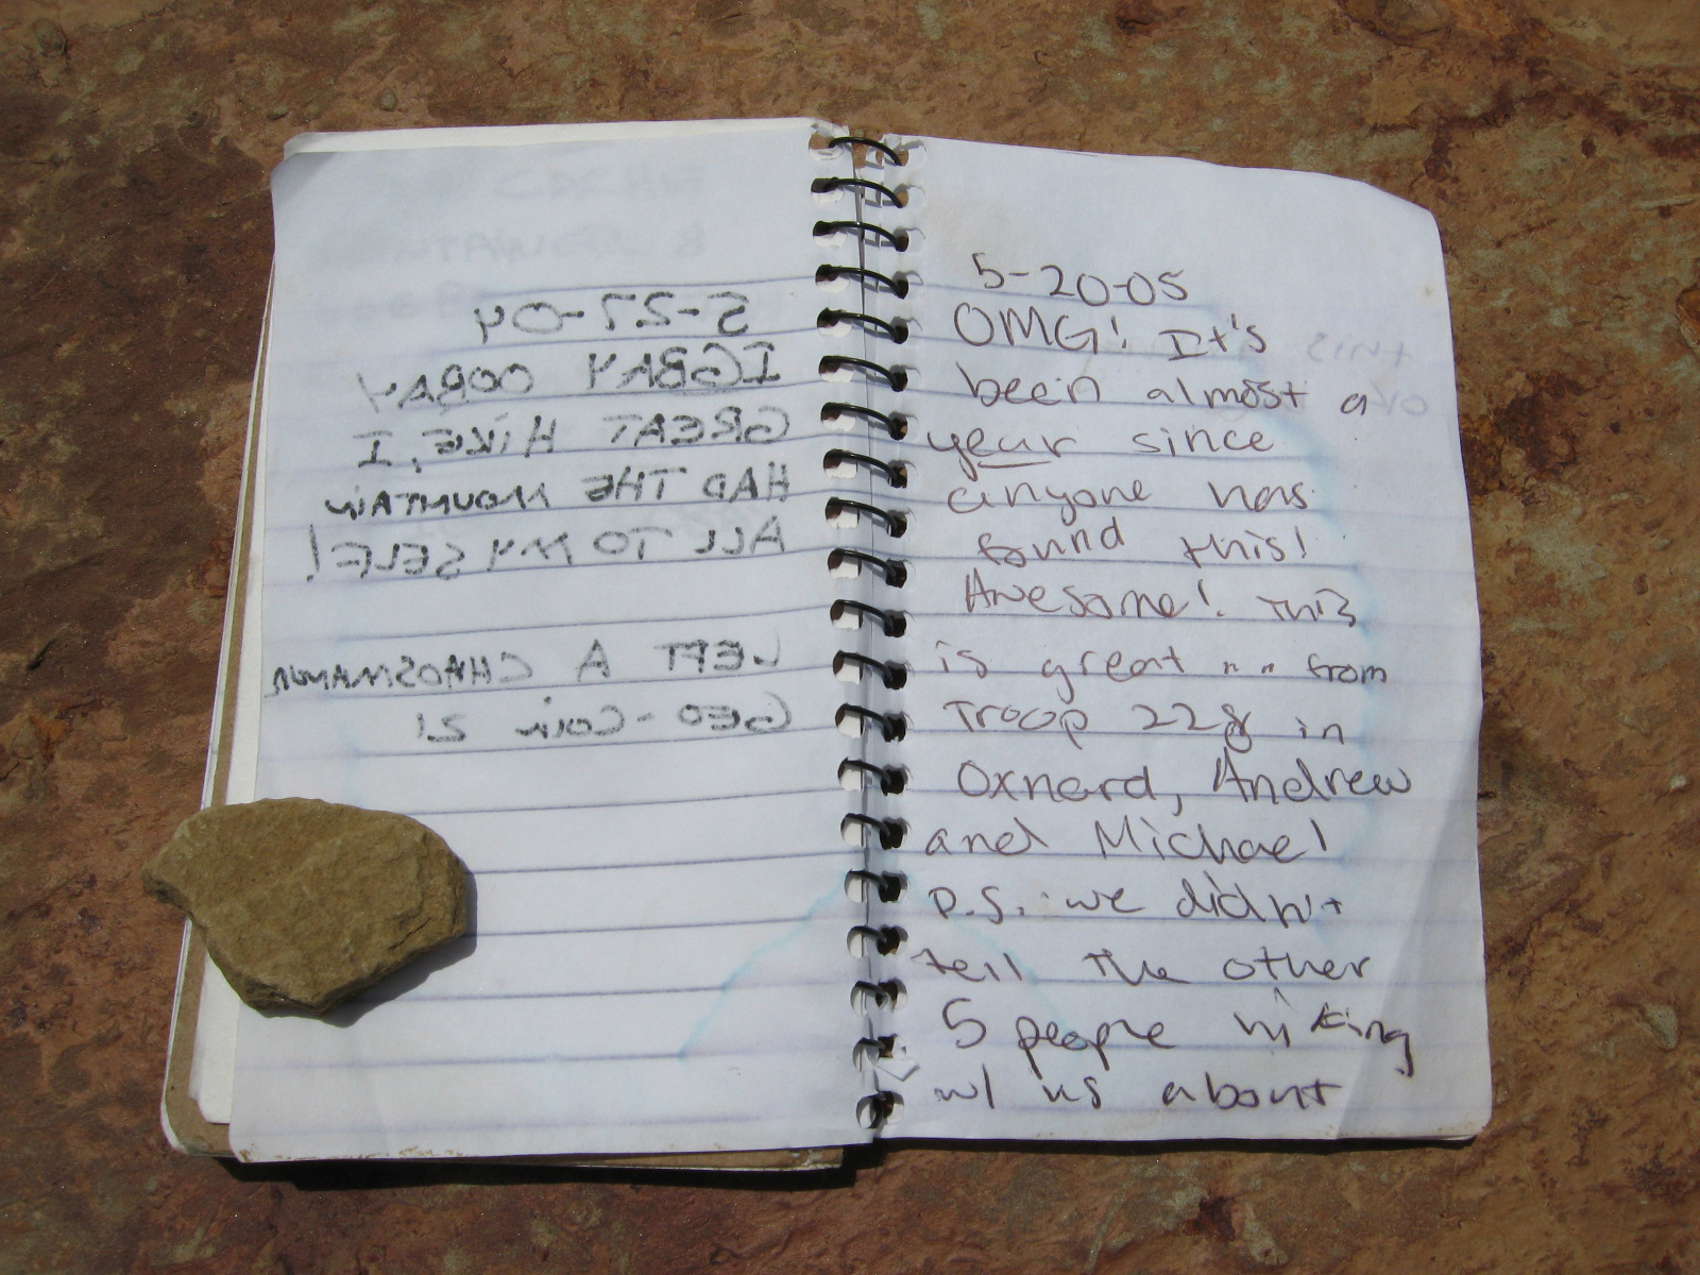 5-27-04
IGBAY OOBAY
GREAT HIKE, I
HAD THE MOUNTAIN
ALL TO MY SELF!
LEFT A CHAOSMANOR
GEO-COIN 21
5-20-05
OMG! It's
been almost a
year since
anyone has
found this!
Awesome! This
is great... from
Troop 228 in
Oxnard, Andrew
and Michael
P.S. we didn't
tell the other
5 people hiking
w/ us about